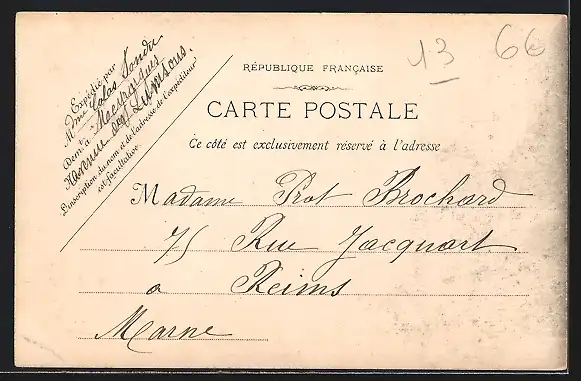 13 66
RÉPUBLIQUE FRANÇAISE
CARTE POSTALE
Ce côté est exclusivement réservé à l'adresse
Expédié par
Mme
Dem. à
L'inscription du nom et de l'adresse de l'expéditeur
est facultative.
Madame Prot Brochard
75 Rue Jacquart
a Reims
Marne